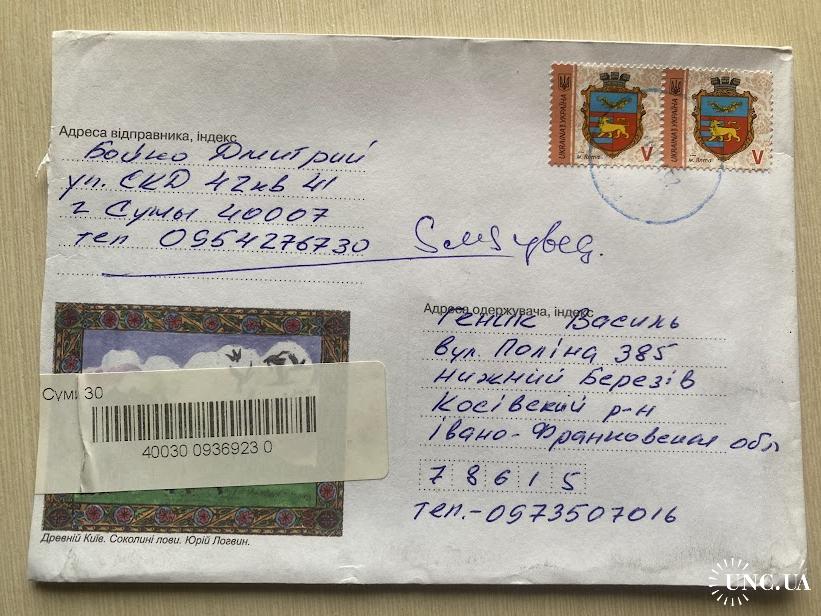 UKRAINE УКРАЇНА
м. Ялта
V
UKRAINE УКРАЇНА
м. Ялта
V
Адреса відправника, індекс
Бойко Дмитрий
ул. СКД 42 кв 41
г Сумы 40007
тел 0954276730
SMS увед.
Адреса одержувача, індекс
Геник Василь
вул. Поліна 385
Нижний Березів
Косівский р-н
Івано-Франковская обл
78615
тел.-0973507016
Суми 30
40030 0936923 0
Древній Київ. Соколині лови. Юрій Логвин.
UNC.UA